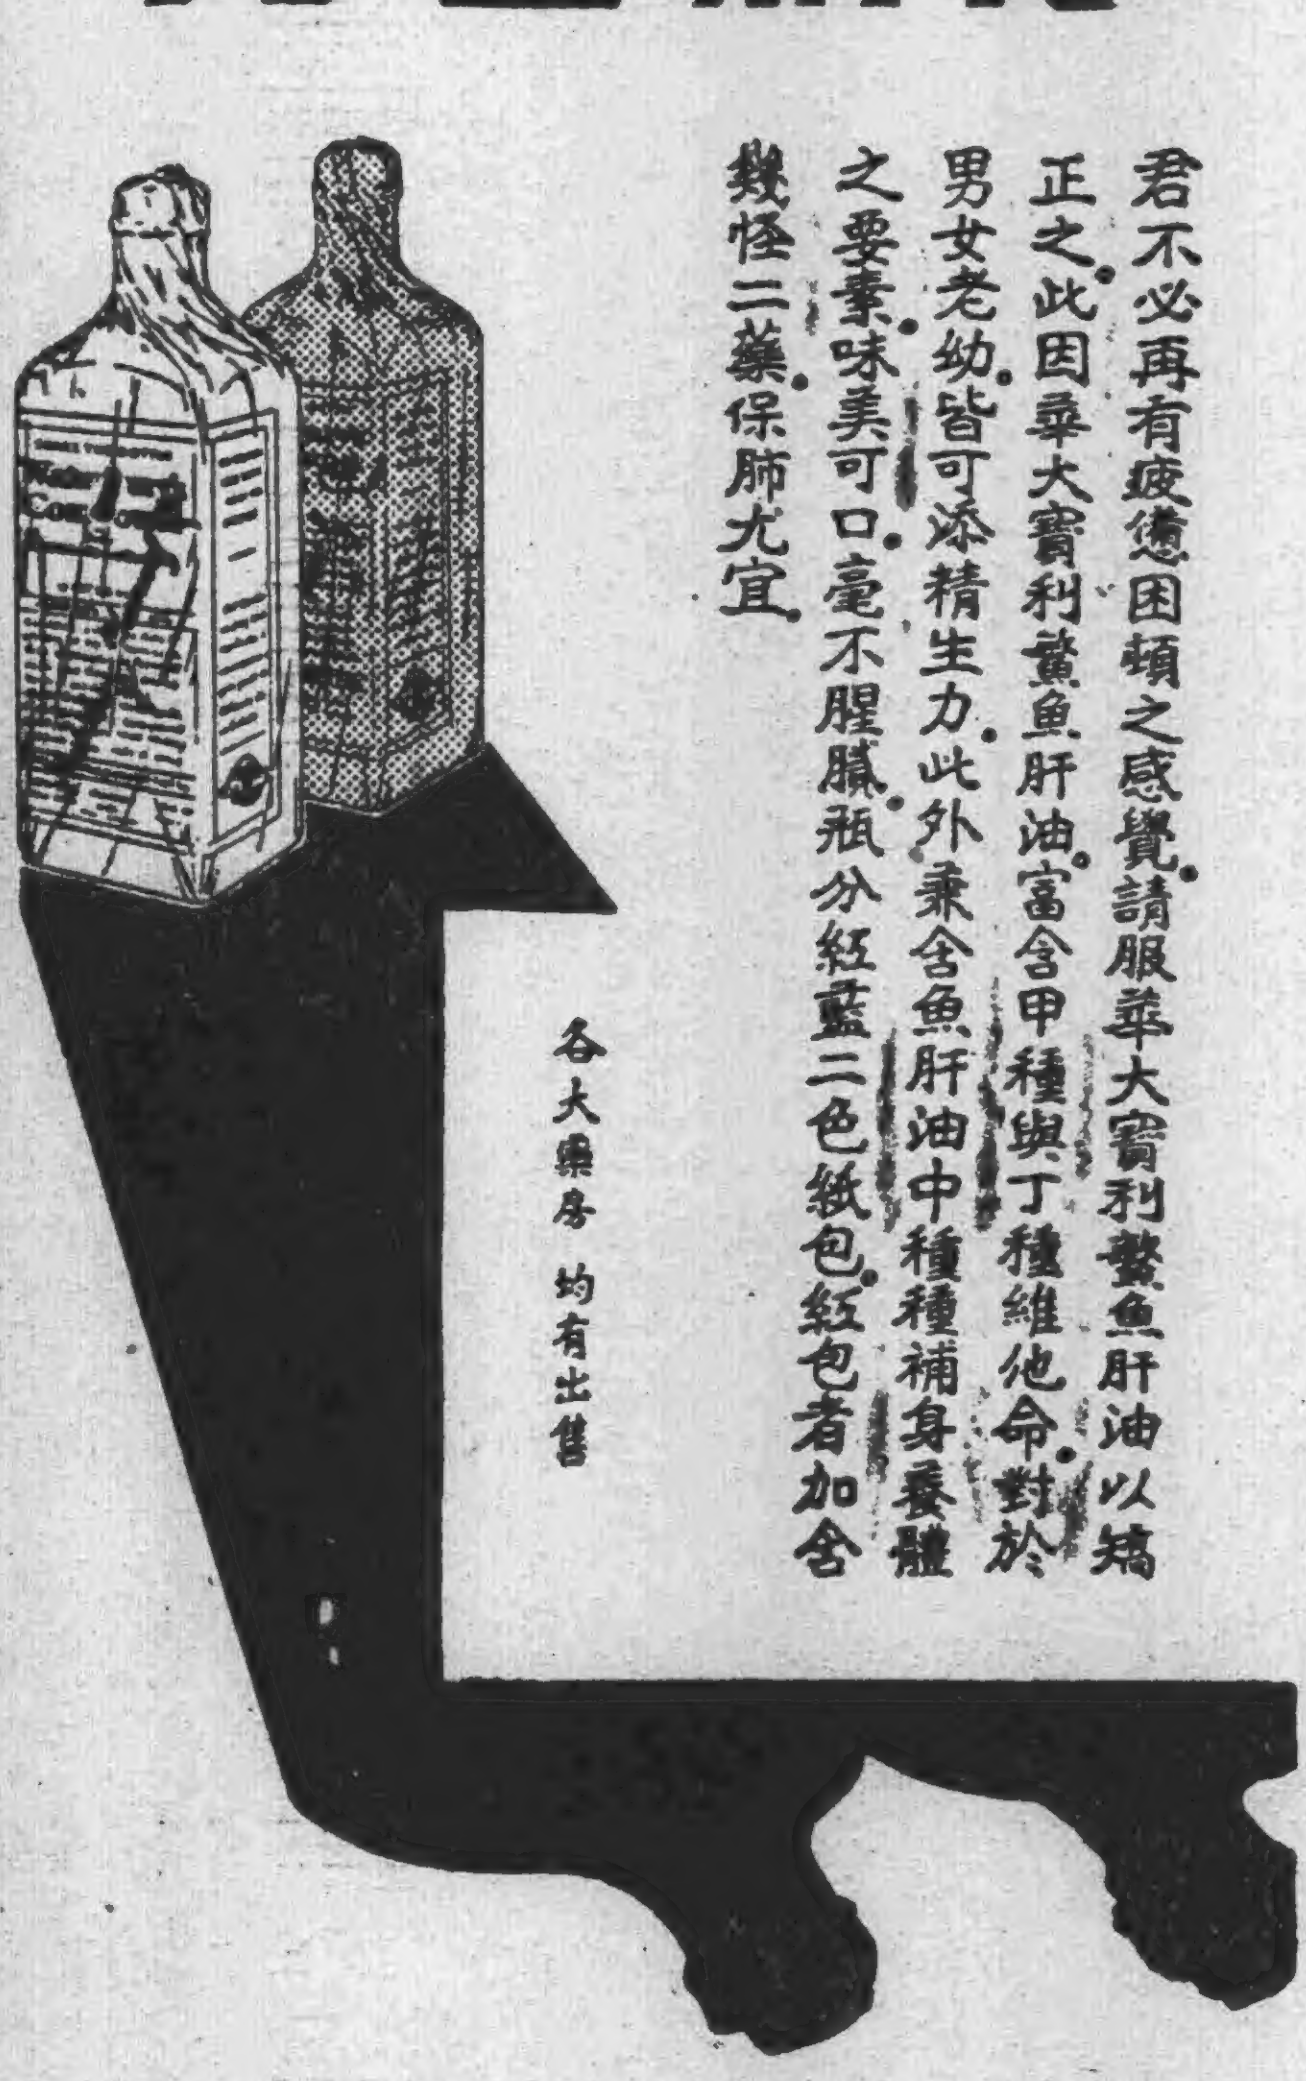 君不必再有疲憊困頓之感覺。請服華大寶利鰵魚肝油以矯
正之。此因華大寶利鰵魚肝油。富含甲種與丁種維他命。對於
男女老幼。皆可添精生力。此外兼含魚肝油中種種補身養體
之要素。味美可口。毫不腥膩。瓶分紅藍二色紙包。紅包者加含
幾怪二藥。保肺尤宜。
各大藥房 均有出售